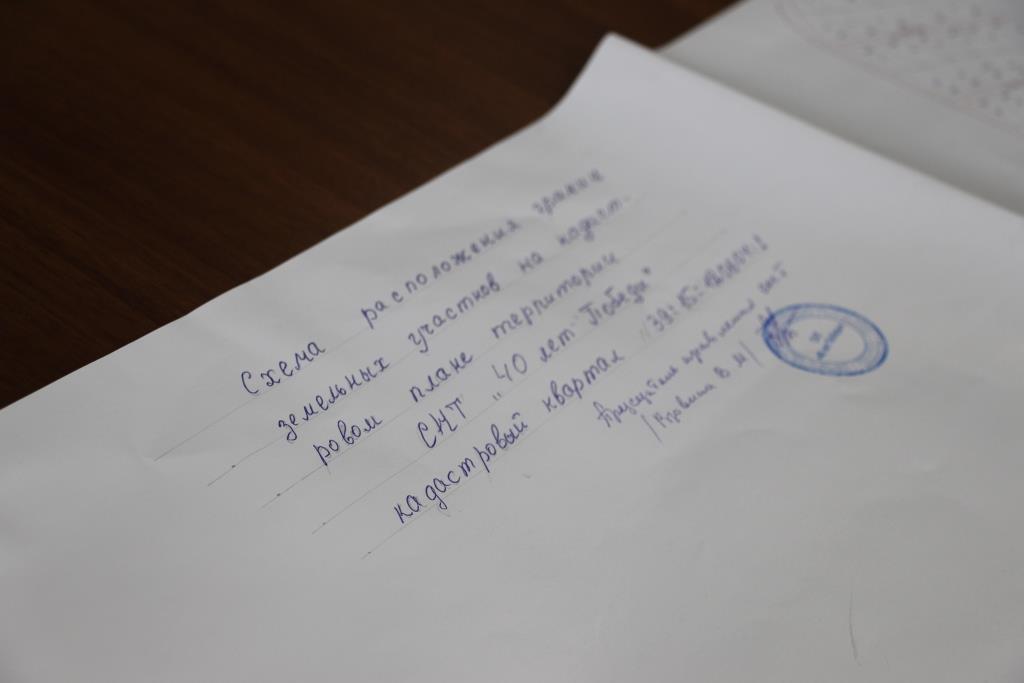 Схема расположения границ
земельных участков на кадаст-
ровом плане территории
СНТ "40 лет Победы"
кадастровый квартал "39:15:
Председатель правления СНТ